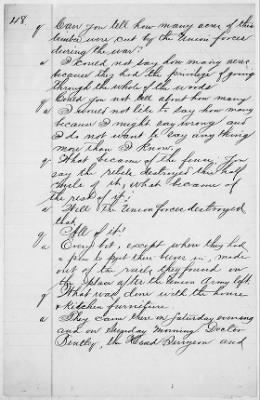 118.
q Can you tell how many acres of this
timber were cut by the Union forces
during the war?
a I could not say how many acres,
because they had the privilege of going
through the whole of the woods
q Could you not tell about how many
a I would not like to say how many
because I might say wrong and
I do not want to say any thing
more than I know.
q What became of the fence; You
say the rebels destroyed this half
mile of it, what became of
the rest of it;
a Well the Union forces destroyed
that
q All of it?
a Every bit, except where they had
a pen to put their beeve in, made
out of the rails they found on
the place after the Union Army left.
q What was done with the house
& kitchen furniture.
a They came there on Saturday evening
and on Sunday morning Doctor
Bentley, the Head Surgeon and